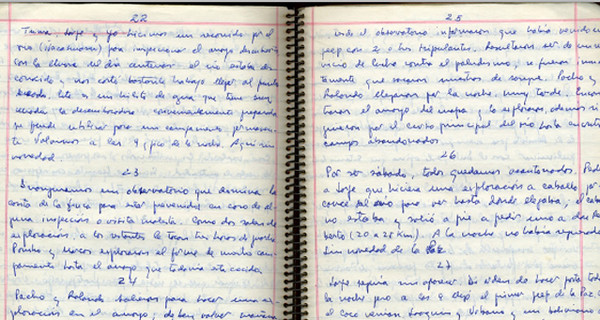 22
Tuma, Jorge y yo hicimos un recorrido por el
río (Ñacahuasu) para inspeccionar el arroyo descubierto
con la lluvia del día anterior el río estaba des
conocido y nos costó bastante trabajo llegar al punto
deseado. Este es un hilito de agua que tiene muy
cerrada la desembocadura convenientemente preparada
se puede utilizar para un campamento permanen
te. Volvimos a las 9 pico de la noche. Aquí sin
novedad.
23
Inauguramos un observatorio que domina la
casita de la finca para estar prevenidos en caso de al
guna inspección o visita molesta. Como dos salen de
exploración, a los restantes le tocan tres horas de posta.
Pombo y Marcos exploraron el firme de nuestro cam
pamento hasta el arroyo que todavía está crecido.
24
Pacho y Rolando salieron para hacer una ex
ploración en el arroyo; deben volver mañana
25
desde el observatorio informaron que había venido un
jeep con 2 o tres tripulantes. Resultaron ser de un ser
vicio de lucha contra el paludismo; se fueron inmedia
tamente que sacaron muestras de sangre. Pacho y
Rolando llegaron por la noche, muy tarde. Encon
traron el arroyo del mapa y lo exploraron además si
guieron por el curso principal del río hasta encontrar
campos abandonados.
26
Por ser sábado, todos quedamos acuartelados. Pedí
a Jorge que hiciera una exploración a caballo por el
cauce del río para ver hasta donde llegaba; el caballo
no estaba y salió a pie a pedir uno a don Re
berto (20 a 25 km). A la noche no había regresado
Sin novedad de la Paz
27
Jorge seguía sin aparecer. Di orden de hacer posta toda
la noche pero a las 9 llegó el primer jeep de la Paz. Con
el Coco venían Joaquín y Urbano y un boliviano